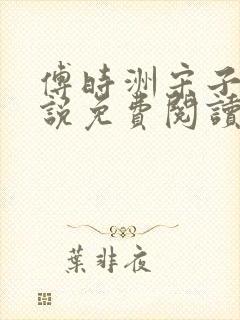 傅時洲宋子
説免費閱讀
葉非夜